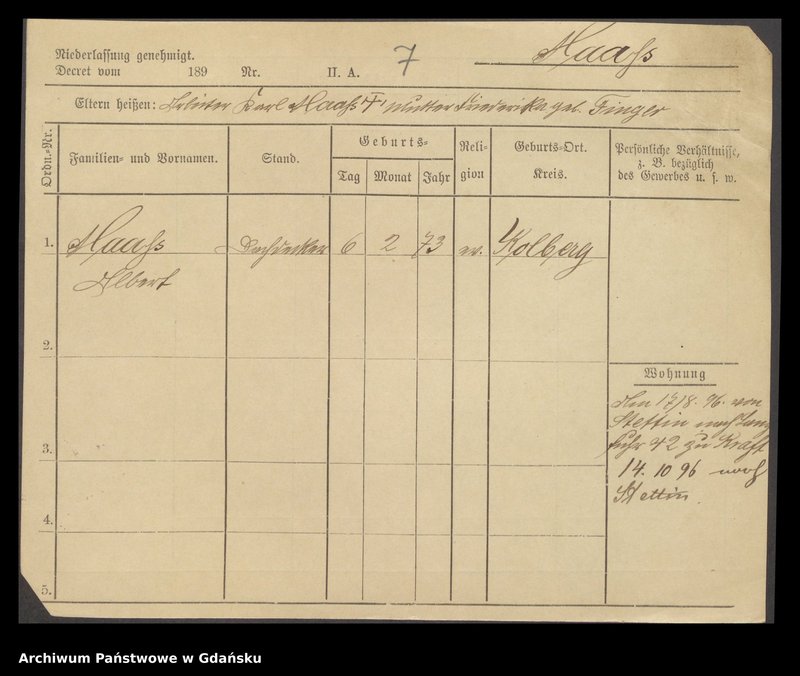 Niederlassung genehmigt.
Decret vom 189 Nr. II. A. 7 Haaß
Eltern heißen: Arbeiter Karl Haaß †, Mutter Friederike geb. Finger
Ordn.-Nr. Familien- und Vornamen. Stand. Geburts- Tag Monat Jahr Religion Geburts-Ort. Kreis. Persönliche Verhältnisse, z. B. bezüglich des Gewerbes u. s. w.
1. Haaß Dachdecker 6 2 73 ev. Kolberg
Albert
2.
Wohnung
Am 17/8. 96. von
Stettin nach Lang
fuhr 42 zu Kraft
3.
14. 10 96 nach
Stettin.
4.
5.
Archiwum Państwowe w Gdańsku